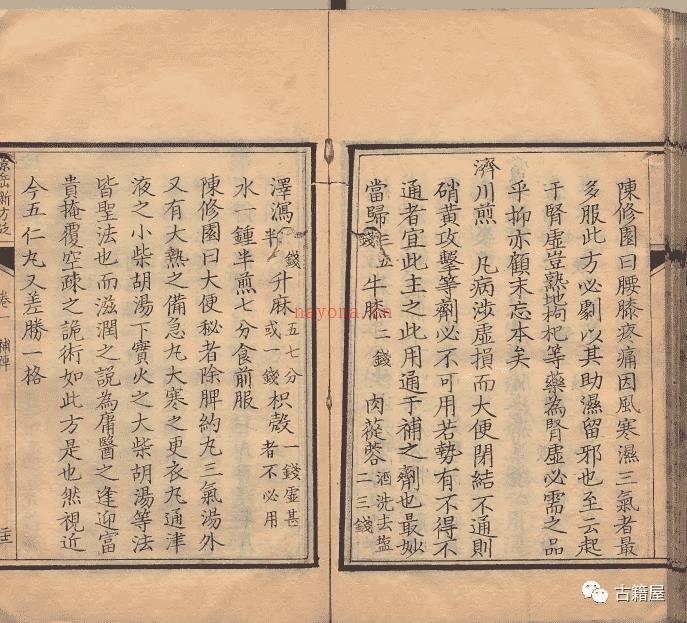 陳修園曰腰膝疼痛因風寒濕三氣者最
多服此方必劇以其助濕留邪也至云起
于腎虛豈熟地枸杞等藥為腎虛必需之品
乎抑亦顧末忘本矣
濟川煎 凡病涉虛損而大便閉結不通則
硝黃攻擊等劑必不可用若勢有不得不
通者宜此主之此用通于補之劑也最妙
當歸三五錢 牛膝二錢 肉蓯蓉酒洗去鹽二三錢
澤瀉半錢 升麻五七分或一錢 枳殼一錢虛甚者不必用
水一鍾半煎七分食前服
陳修園曰大便秘者除脾約丸三氣湯外
又有大熱之備急丸大寒之更衣丸通津
液之小柴胡湯下實火之大柴胡湯等法
皆聖法也而滋潤之說為庸醫之逢迎富
貴掩覆空疎之詭術如此方是也然視近
今五仁丸又差勝一格
景岳新方砭 卷一 補陣
nayona.cn
古籍屋